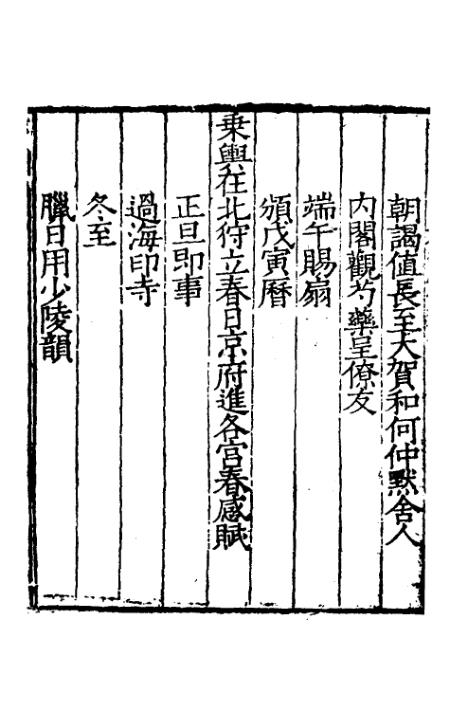 朝謁值長至大賀和何仲默舍人
內閣觀芍藥呈僚友
端午賜扇
頒戊寅曆
乗輿在北狩立春日京府進各宮春感賦
正旦即事
過海印寺
冬至
臘日用少陵韻